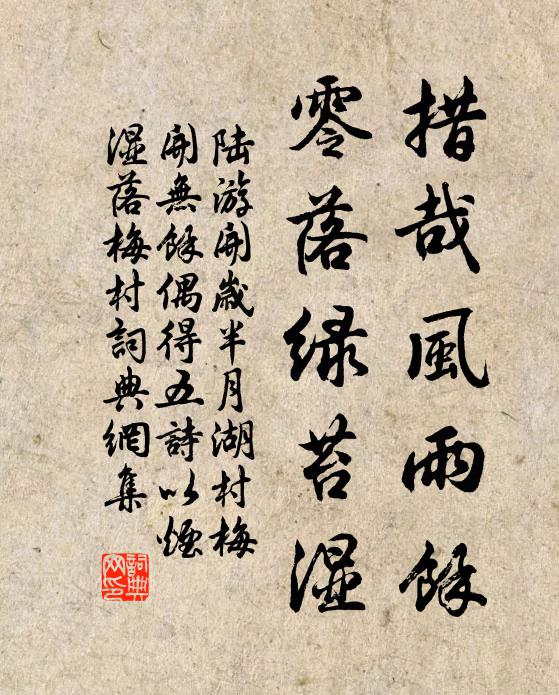 措哉風雨餘
零落緑苔濕
陆游開歲半月湖村梅
開無餘偶得五詩以煙
濕落梅村詞典網集
詞典網印